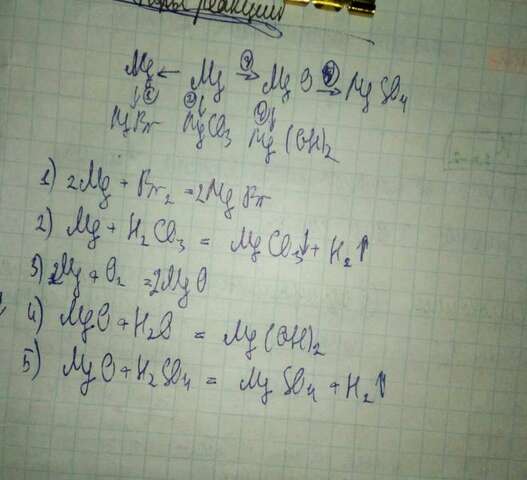 реакции
Mg ← Mg ③→ MgO ⑤→ MgSO4
↓① ②↓ ④↓
MgBr MgCO3 Mg(OH)2
1) 2Mg + Br2 = 2MgBr
2) Mg + H2CO3 = MgCO3↓ + H2↑
3) 2Mg + O2 = 2MgO
4) MgO + H2O = Mg(OH)2
5) MgO + H2SO4 = MgSO4 + H2↑